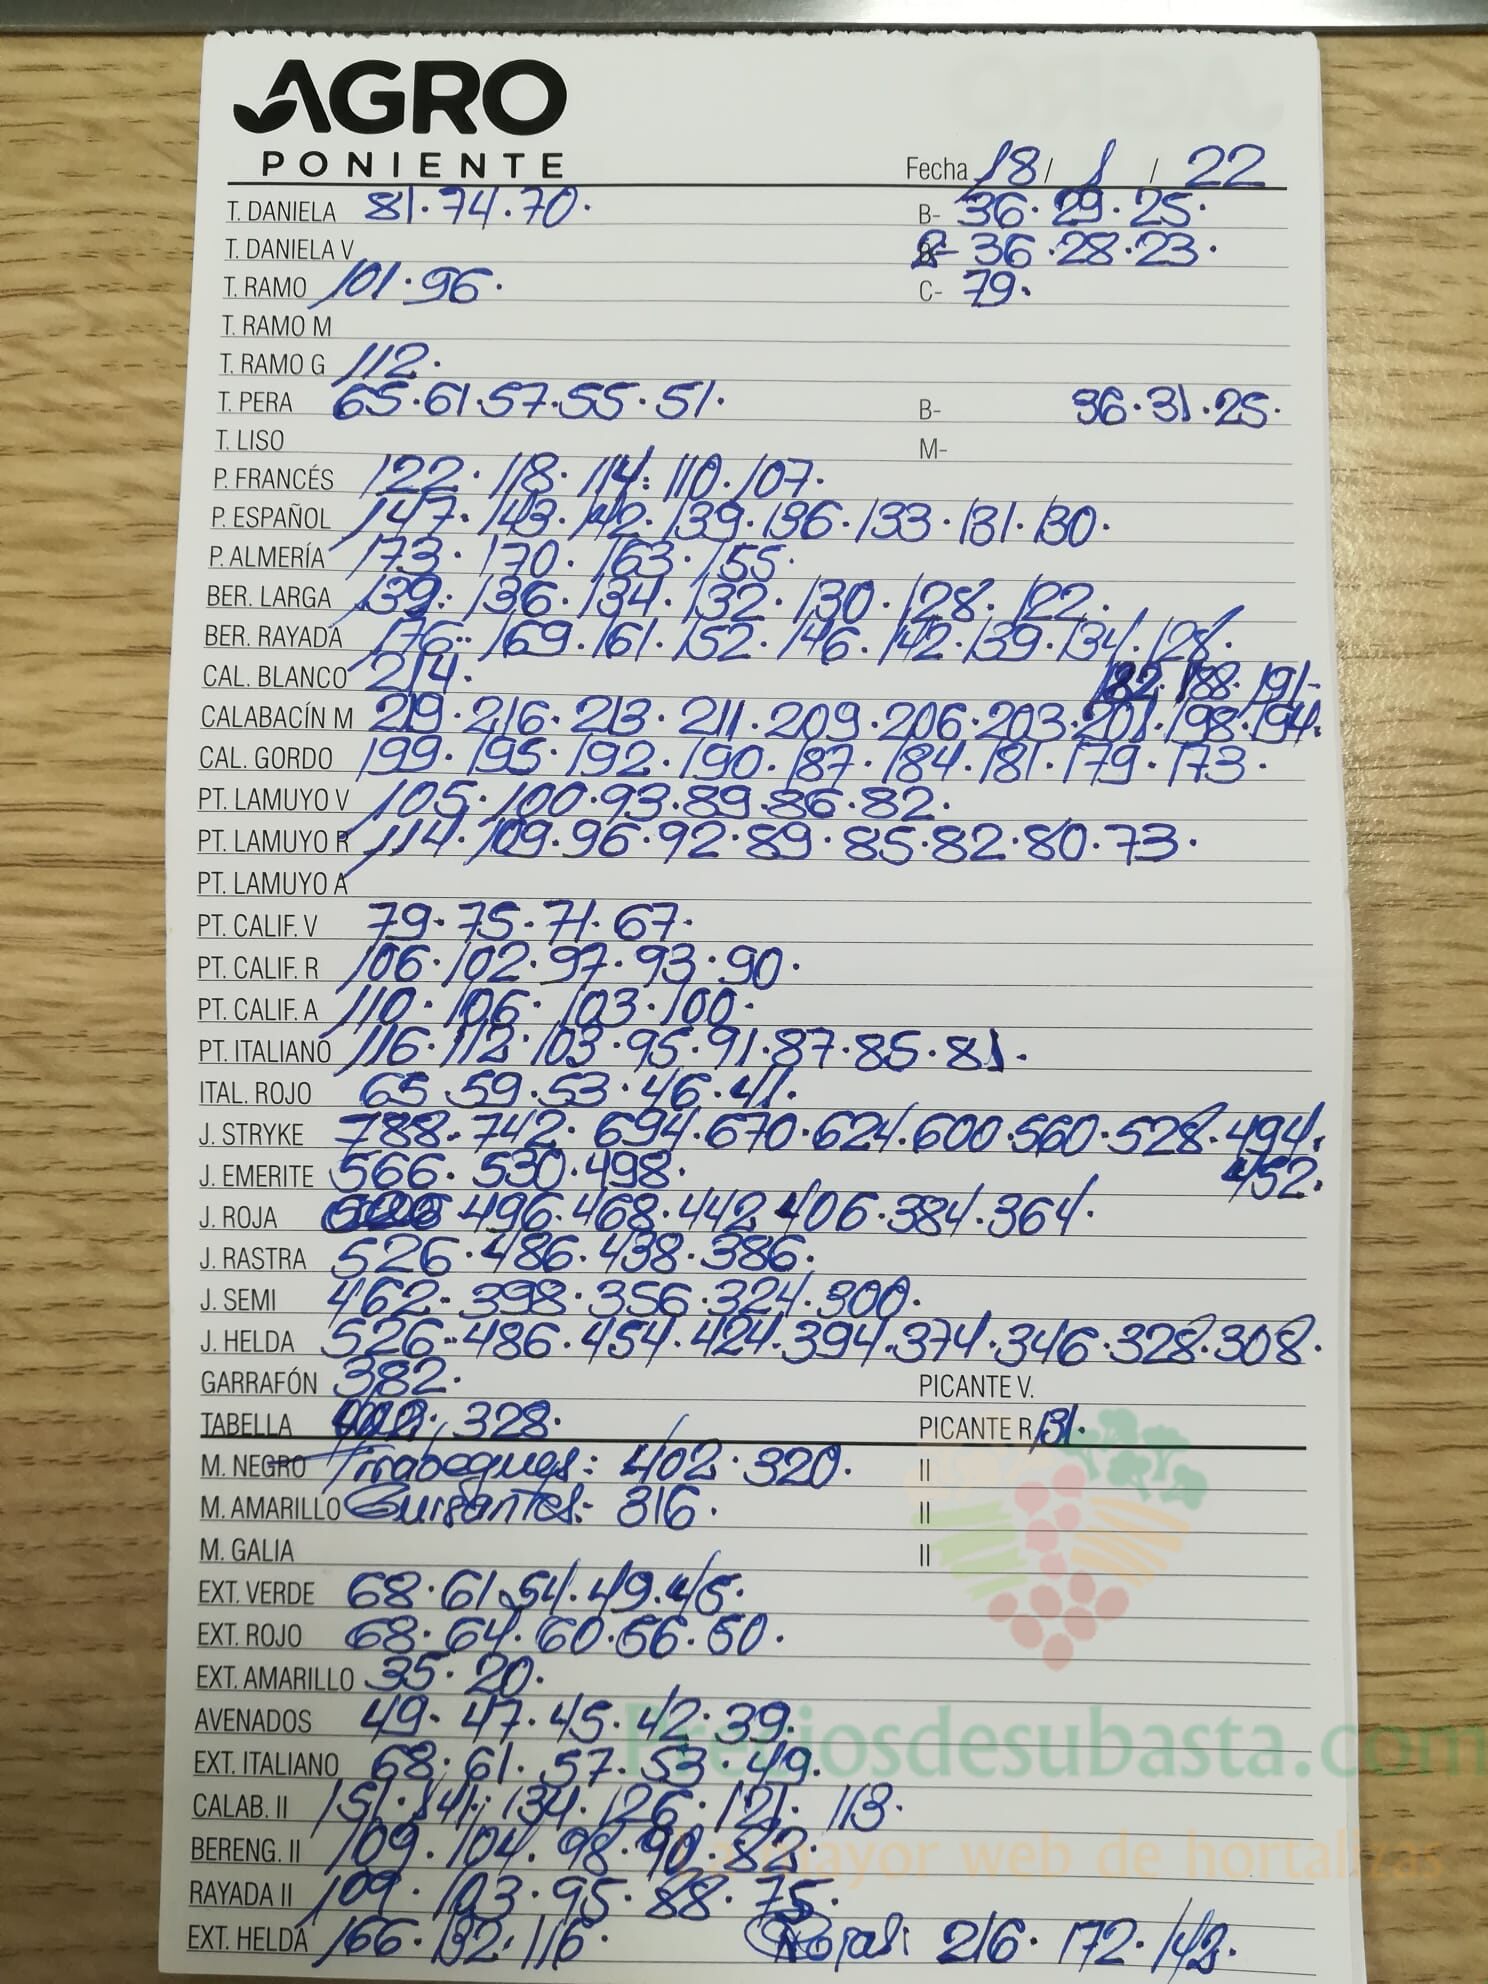 AGRO
PONIENTE
Fecha 18/ 1 / 22
T. DANIELA 81.74.70. B- 36.29.25.
T. DANIELA V B- 36.28.23.
T. RAMO 101.96. C- 79.
T. RAMO M
T. RAMO G 112.
T. PERA 65.61.57.55.51. B- 36.31.25.
T. LISO M-
P. FRANCÉS 122.118.114.110.107.
P. ESPAÑOL 147.143.142.139.136.133.131.130.
P. ALMERÍA 173.170.163.155.
BER. LARGA 139.136.134.132.130.128.122.
BER. RAYADA 176.169.161.152.146.142.139.134.128.
CAL. BLANCO 214. 182.188.191-
CALABACÍN M 219.216.213.211.209.206.203.201.198.194.
CAL. GORDO 199.195.192.190.187.184.181.179.173.
PT. LAMUYO V 105.100.93.89.86.82.
PT. LAMUYO R 114.109.96.92.89.85.82.80.73.
PT. LAMUYO A
PT. CALIF. V 79.75.71.67.
PT. CALIF. R 106.102.97.93.90.
PT. CALIF. A 110.106.103.100.
PT. ITALIANO 116.112.103.95.91.87.85.81.
ITAL. ROJO 65.59.53.46.41.
J. STRYKE 788.742.694.670.624.600.560.528.494.
J. EMERITE 566.530.498. 452.
J. ROJA 496.468.442.406.384.364.
J. RASTRA 526.486.438.386.
J. SEMI 462.398.356.324.300.
J. HELDA 526.486.454.424.394.374.346.328.308.
GARRAFÓN 382. PICANTE V.
TABELLA 328. PICANTE R 131.
M. NEGRO Tirabeques: 402.320. II
M. AMARILLO Guisantes: 316. II
M. GALIA II
EXT. VERDE 68.61.54.49.45.
EXT. ROJO 68.64.60.56.50.
EXT. AMARILLO 35.20.
AVENADOS 49.47.45.42.39.
Preciosdesubasta.com
EXT. ITALIANO 68.61.57.53.49.
CALAB. II 151.141.134.126.121.113.
BERENG. II 109.104.98.90.82.
mayor web de hortalizas
RAYADA II 109.103.95.88.75.
EXT. HELDA 166.132.116. Rojas: 216.172.142.